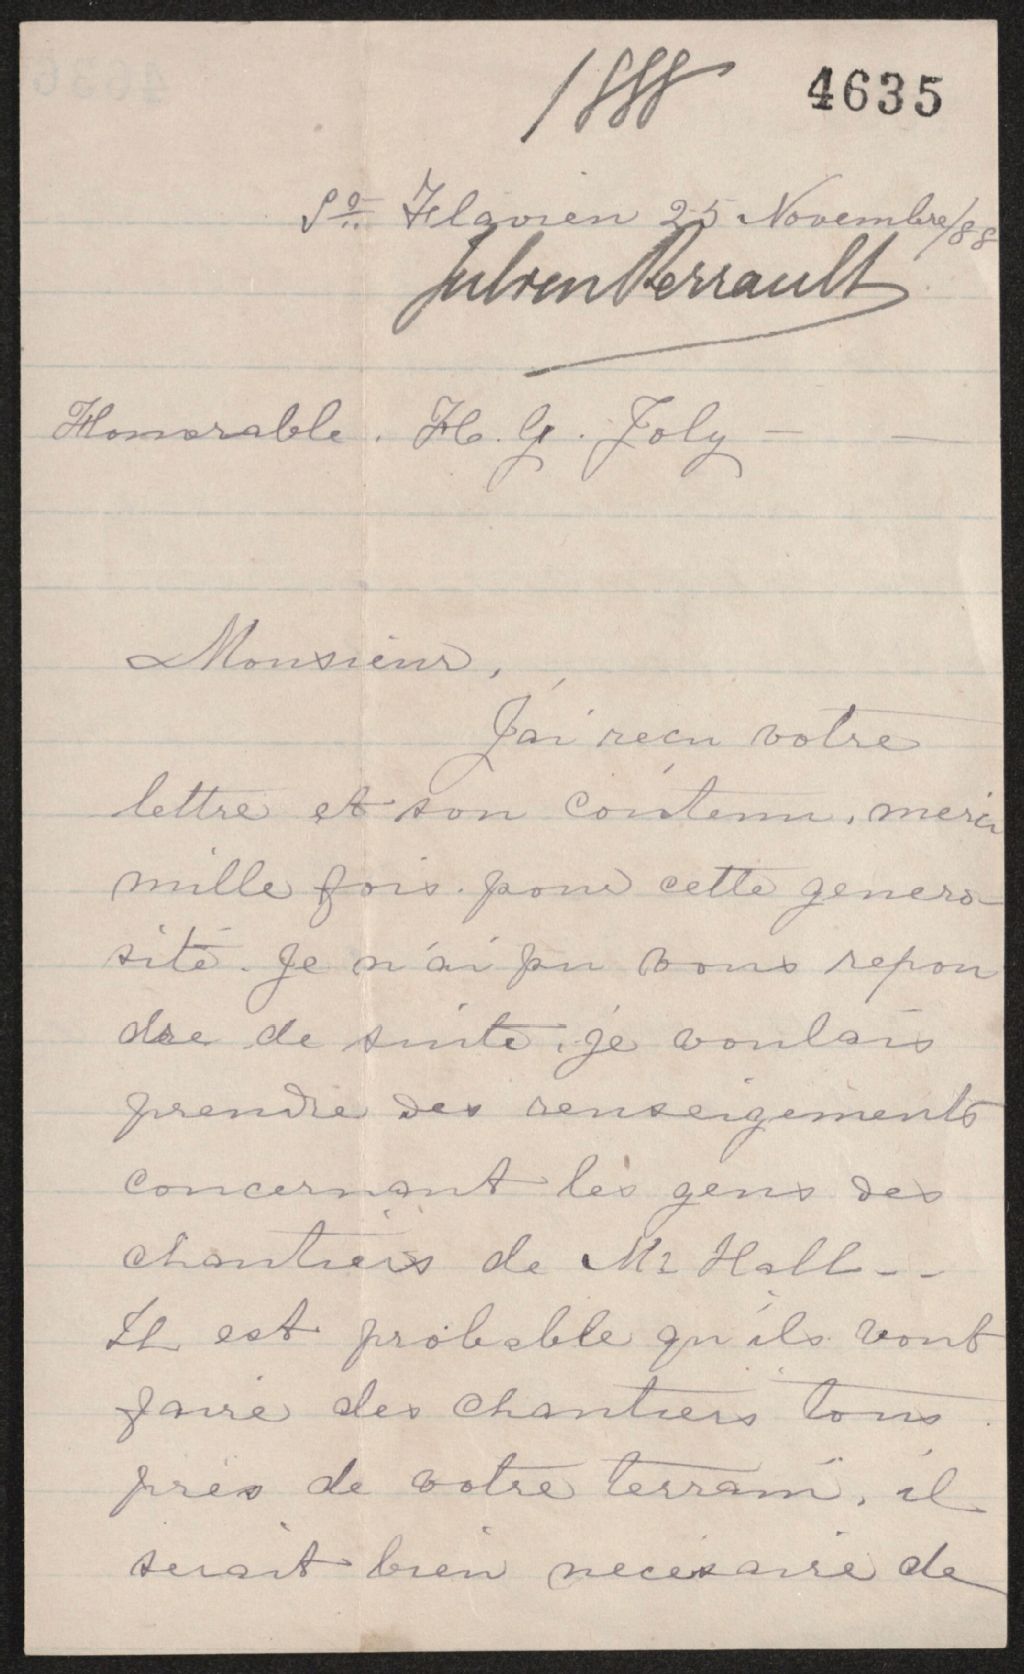 1888 4635
St. Flavien 25 Novembre/88
Julien Perrault
Honorable. H. G. Joly —
Monsieur,
J'ai recu votre
lettre et son contenu, merci
mille fois pour cette genero-
sité. Je n'ai pu vous repon
dre de suite, je voulais
prendre des renseigements
concernant les gens des
chantiers de Mr Hall --
Il est probable qu'ils vont
faire des chantiers tous
près de votre terrain, il
serait bien necessaire de